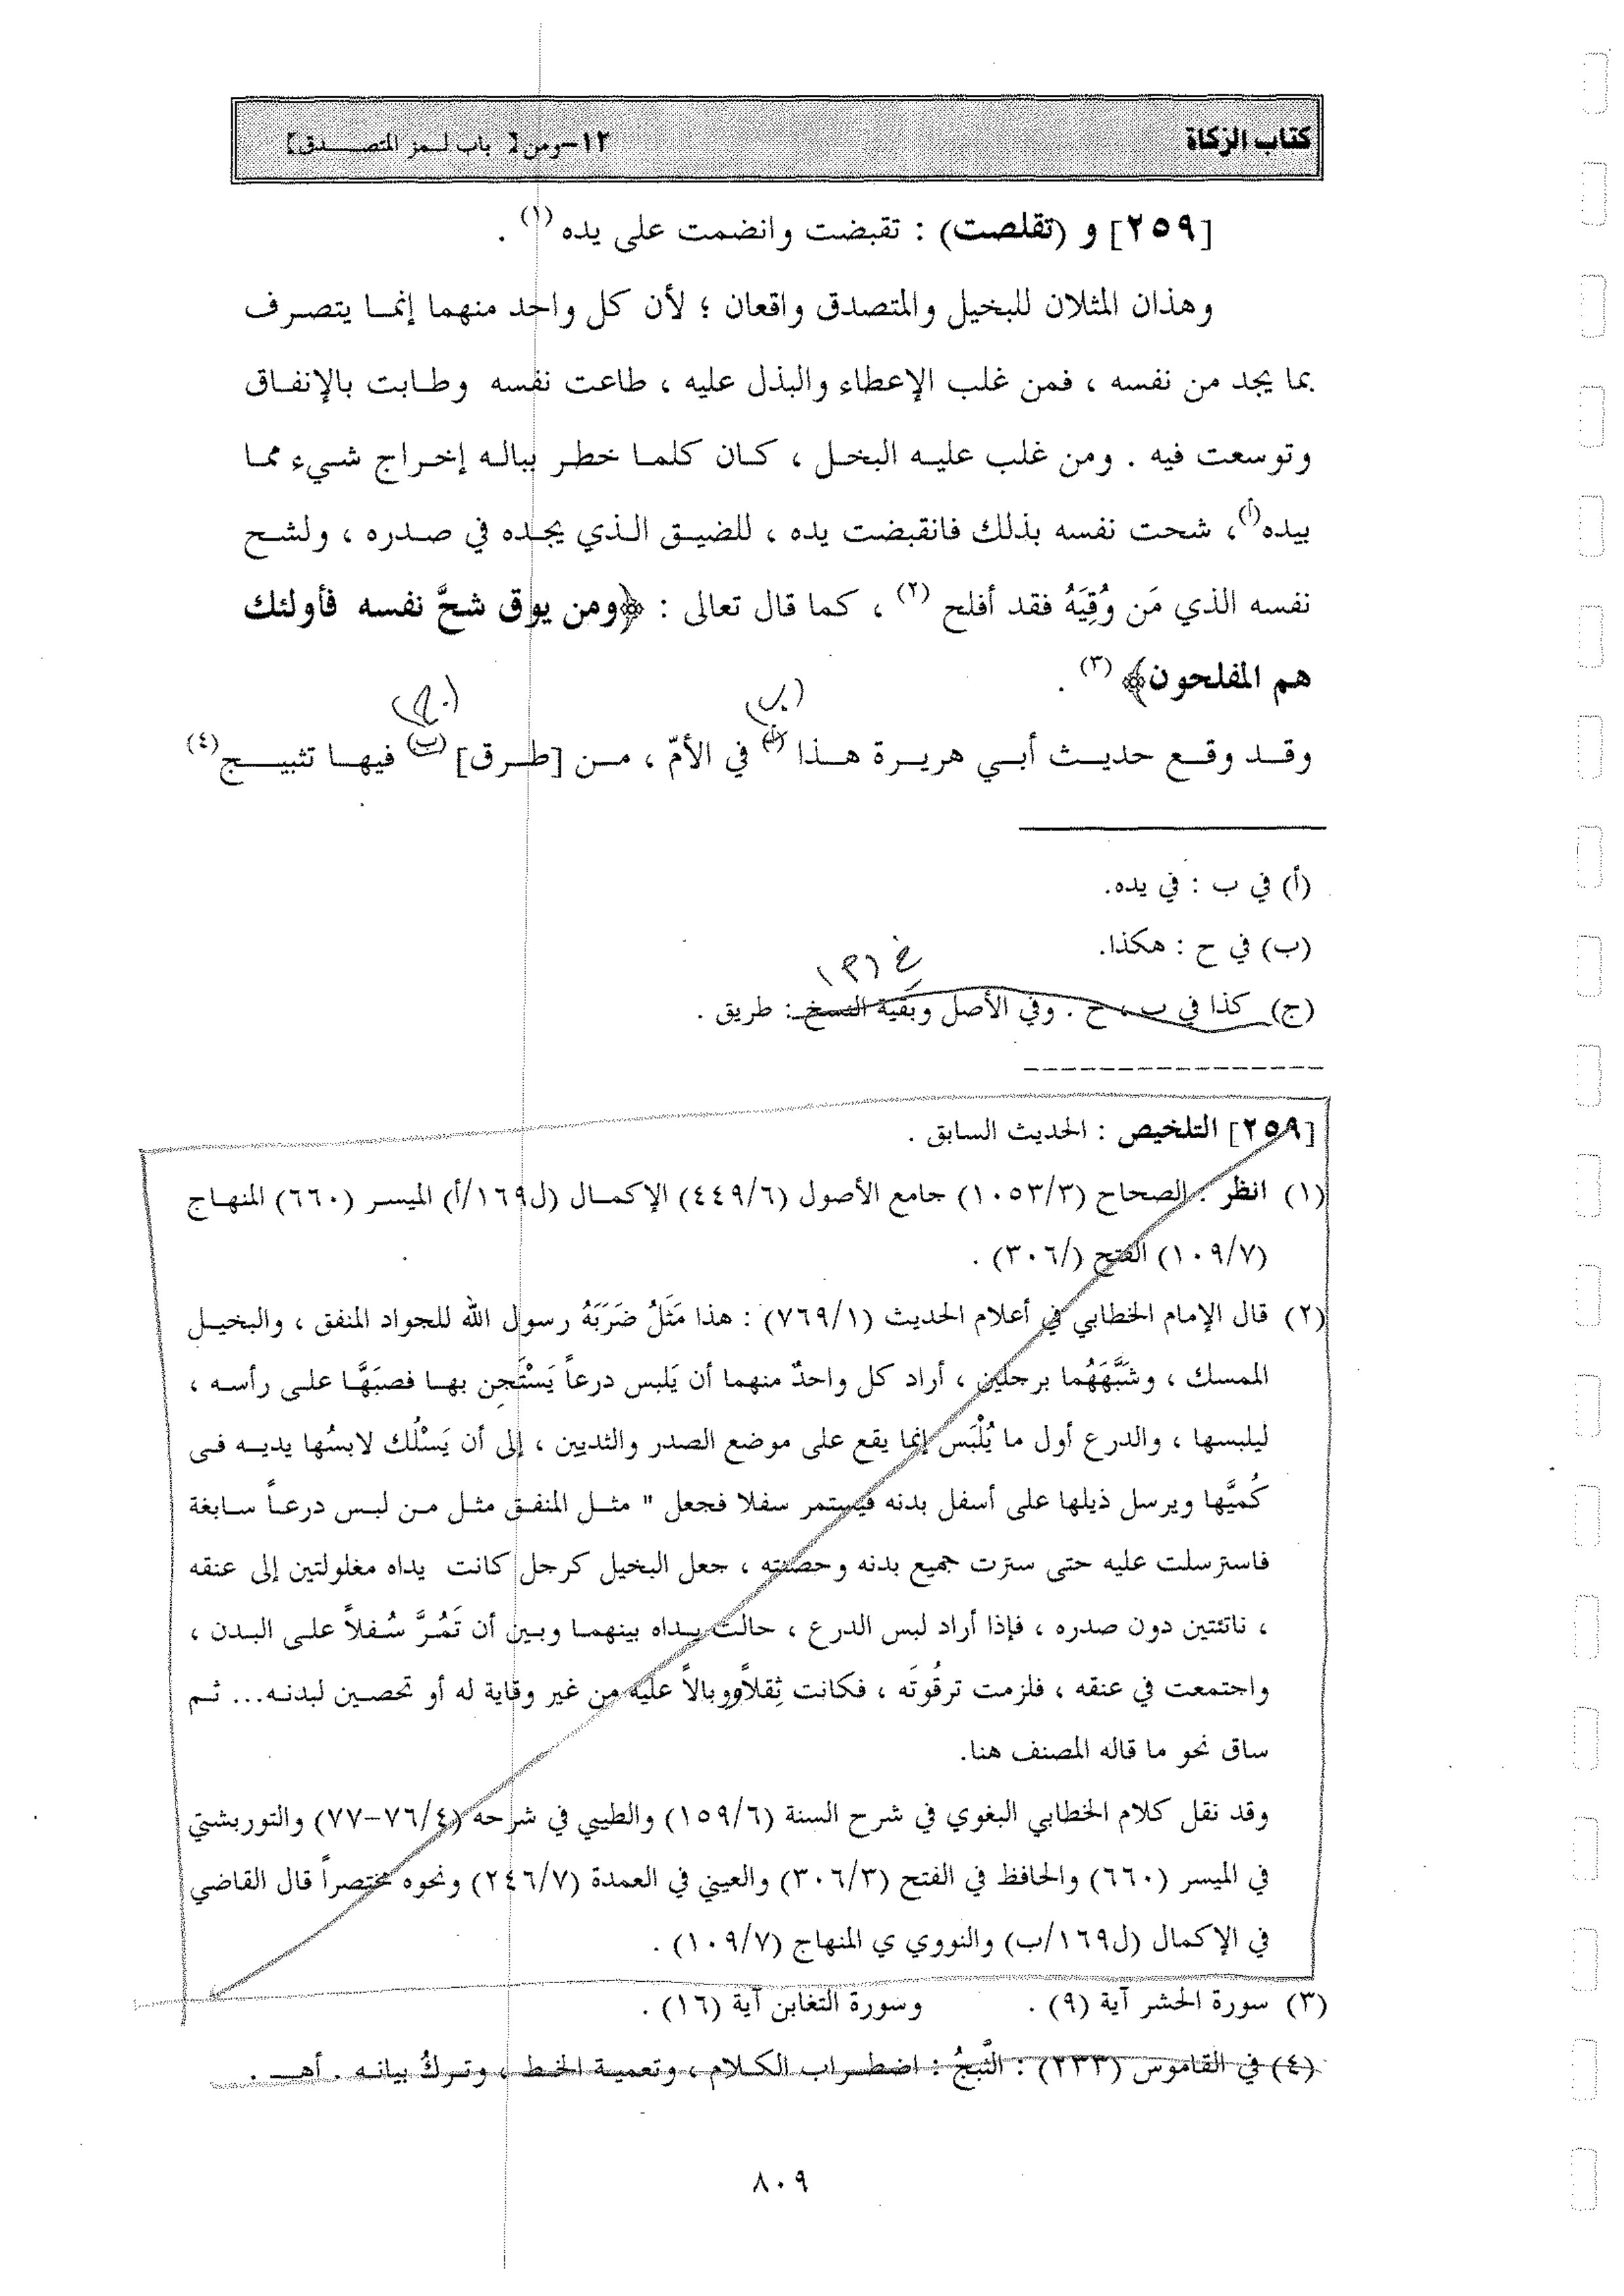 كتاب الزكاة ١٢-ومن [ باب لـمز المتصـــدق]
[٢٥٩] و (تقلصت) : تقبضت وانضمت على يده (١) .
وهذان المثلان للبخيل والمتصدق واقعان ؛ لأن كل واحد منهما إنمـا يتصـرف
بما يجد من نفسه ، فمن غلب الإعطاء والبذل عليه ، طاعت نفسه وطـابت بالإنفـاق
وتوسعت فيه . ومن غلب عليـه البخـل ، كـان كلمـا خطـر ببالـه إخـراج شـيء ممـا
بيده(أ)، شحت نفسه بذلك فانقبضت يده ، للضيـق الـذي يجـده في صـدره ، ولشـح
نفسه الذي مَن وُقِيَهُ فقد أفلح (٢) ، كما قال تعالى : ﴿ومن يوق شحَّ نفسه فأولئك
هم المفلحون﴾ (٣) .
(ب) (ج)
وقـد وقـع حديـث أبـي هريـرة هـذا (أ) في الأمّ ، مـن [طـرق] (ب) فيهـا تثبيـــج(٤)
(أ) في ب : في يده.
(ب) في ح : هكذا.
(ج) كذا في ب ، ح . وفي الأصل وبقية النسخ : طريق .
[٢٥٩] التلخيص : الحديث السابق .
(١) انظر : الصحاح (١٠٥٣/٣) جامع الأصول (٤٤٩/٦) الإكمـال (ل١٦٩/أ) الميسـر (٦٦٠) المنهـاج
(١٠٩/٧) الفتح (/٣٠٦) .
(٢) قال الإمام الخطابي في أعلام الحديث (٧٦٩/١) : هذا مَثَلُ ضَرَبَهُ رسول الله للجواد المنفق ، والبخيـل
الممسك ، وشَبَّهَهُما برجلين ، أراد كل واحدٌ منهما أن يَلبس درعاً يَسْتَجِن بهـا فصبَهَّا علـى رأسـه ،
ليلبسها ، والدرع أول ما يُلْبَس إنما يقع على موضع الصدر والثديين ، إلى أن يَسْلُك لابسُها يديـه فـى
كُميَّها ويرسل ذيلها على أسفل بدنه فيستمر سفلا فجعل " مثـل المنفـق مثـل مـن لبـس درعـاً سـابغة
فاسترسلت عليه حتى سترت جميع بدنه وحصنته ، جعل البخيل كرجل كانت يداه مغلولتين إلى عنقه
، ناتئتين دون صدره ، فإذا أراد لبس الدرع ، حالت يـداه بينهمـا وبـين أن تَمُـرَّ سُـفلاً علـى البـدن ،
واجتمعت في عنقه ، فلزمت ترقُوتَه ، فكانت ثِقلاًووبالاً عليه من غير وقاية له أو تحصـين لبدنـه... ثـم
ساق نحو ما قاله المصنف هنا.
وقد نقل كلام الخطابي البغوي في شرح السنة (١٥٩/٦) والطيبي في شرحه (٧٦/٤-٧٧) والتوربشتي
في الميسر (٦٦٠) والحافظ في الفتح (٣٠٦/٣) والعيني في العمدة (٢٤٦/٧) ونحوه مختصراً قال القاضي
في الإكمال (ل١٦٩/ب) والنووي ي المنهاج (١٠٩/٧) .
(٣) سورة الحشر آية (٩) . وسورة التغابن آية (١٦) .
(٤) في القاموس (٢٣٣) : الثَّبَجُ : اضطـراب الكـلام ، وتعميـة الخـط ، وتـركُ بيانـه . أهـ .
٨٠٩